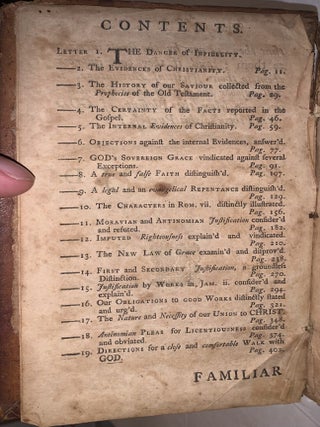 CONTENTS.
LETTER 1. THE DANGER OF INFIDELITY.
—2. The EVIDENCES of CHRISTIANITY. Pag. 11.
—3. The HISTORY of our SAVIOUR collected from the
Prophecies of the Old Testament. Pag. 29.
—4. The CERTAINTY of the FACTS reported in the
Gospel. Pag. 46.
—5. The INTERNAL Evidences of Christianity. Pag. 59.
—6. OBJECTIONS against the internal Evidences, answer'd.
Pag. 77.
—7. GOD's SOVEREIGN GRACE vindicated against several
Exceptions. Pag. 91.
—8. A true and false FAITH distinguish'd. Pag. 107.
—9. A legal and an evangelical REPENTANCE distinguish'd.
Pag. 129.
—10. The CHARACTERS in ROM. vii. distinctly illustrated.
Pag. 156.
—11. MORAVIAN and ANTINOMIAN Justification consider'd
and refuted. Pag. 182.
—12. IMPUTED Righteousness explain'd and vindicated.
Pag. 210.
—13. The NEW LAW of Grace examin'd and disprov'd.
Pag. 238.
—14. FIRST and SECONDARY Justification, a groundless
Distinction. Pag. 270.
—15. Justification by WORKS in, JAM. ii. consider'd and
explain'd. Pag. 294.
—16. Our OBLIGATIONS to GOOD WORKS distinctly stated
and urg'd. Pag. 321.
—17. The Nature and Necessity of our UNION to CHRIST.
Pag. 348.
—18. Antinomian PLEAS for LICENTIOUSNESS consider'd
and obviated. Pag. 374.
—19. DIRECTIONS for a close and comfortable WALK with
GOD. Pag. 402.
FAMILIAR